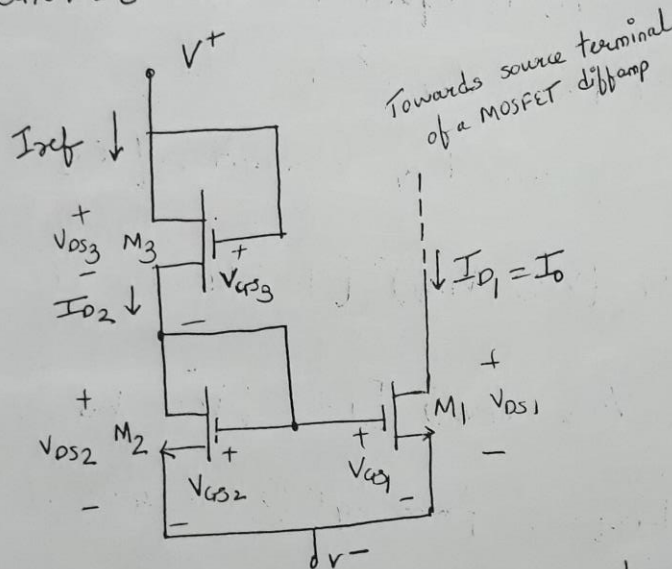 V+
Towards source terminal
of a MOSFET diffamp
Iref ↓
+
VDS3 M3 +
-
VGS3
ID2 ↓ -
↓ ID1 = I0
+
VDS2 M2 +
-
VGS2
-
+
M1 VDS1
-
+
VGS1
-
V-